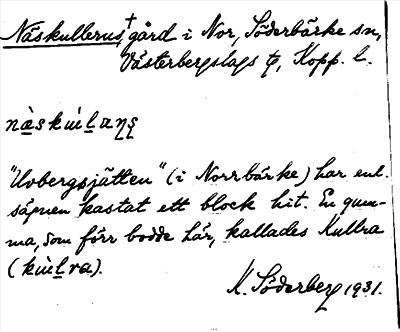 Näskullerus, †gård i Nor, Söderbärke sn,
Västerbergslags tg, Kopp. l.
nàskùlaŋs
"Uvbergsjätten" (i Norrbärke) har enl.
sägnen kastat ett block hit. En qum-
ma, som förr bodde här, kallades Kullra
(kùlra).
K. Söderberg 1931.